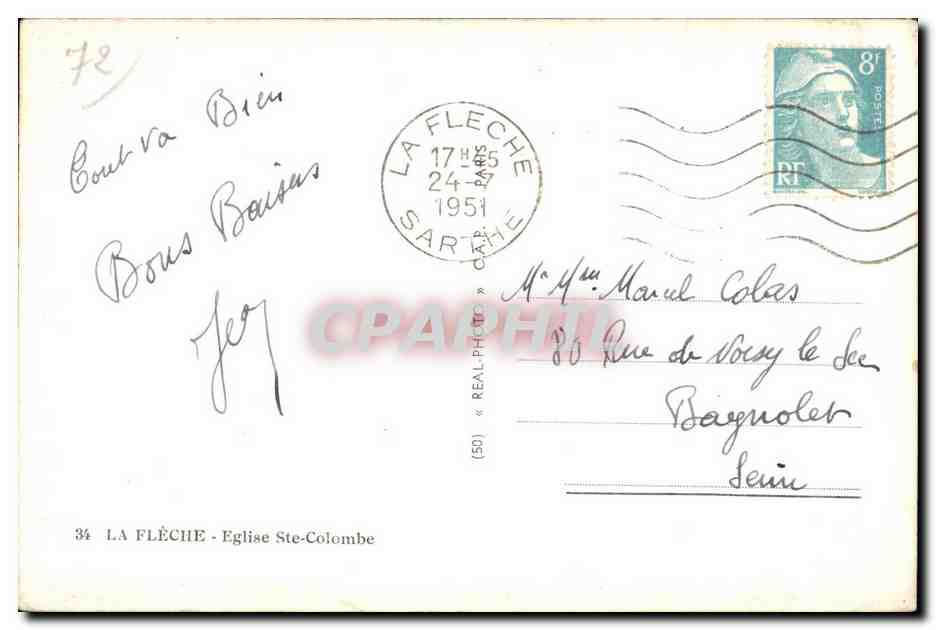 72
Tout va Bien
Bons Baisers
LA FLECHE
17H-45
24-7
1951
SARTHE
8F
POSTES
RF
Mr Mme Marcel Colas
80 Rue de Noisy le Sec
Bagnolet
Seine
CPAPHIL
(50) « REAL-PHOTO » C.A.P. PARIS
34 LA FLÈCHE - Eglise Ste-Colombe